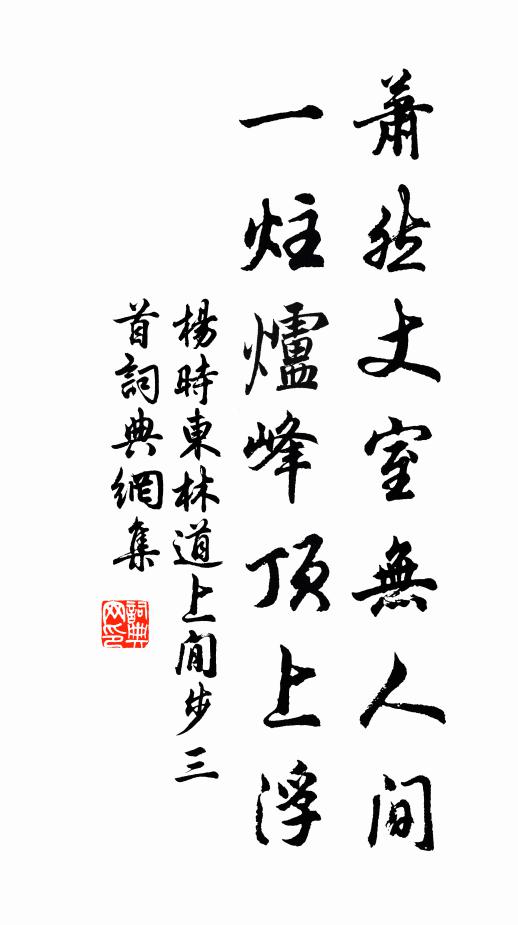 蕭然丈室無人間
一炷爐峰頂上浮
楊時東林道上閒步三
首詞典網集
詞典网印